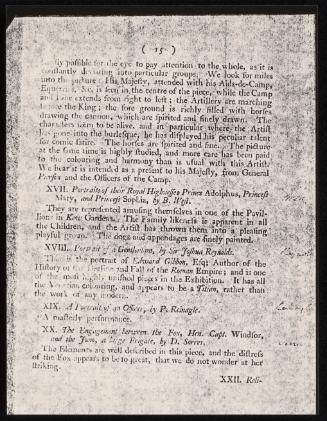 ( 15 )
possible for the eye to pay attention to the whole, as it is
constantly deviating into particular groups. We look for miles
into the picture : His Majesty, attended with his Aids-de-Camp,
Equerries, &c. is seen in the centre of the piece, while the Camp
and Line extends from right to left ; the Artillery are marching
before the King ; the fore ground is richly filled with horses
drawing the cannon, which are spirited and finely drawn. The
characters seem to be alive, and in particular where the Artist
has gone into the burlesque, he has displayed his peculiar talent
for comic satire. The horses are spirited and fine. The picture
at the same time is highly studied, and more care has been paid
to the colouring and harmony than is usual with this Artist.
We hear it is intended as a present to his Majesty, from General
and the Officers of the Camp.
XVII. Portraits of their Royal Highnesses Prince Adolphus, Princess
Mary, and Princess Sophia, by B. West.
They are represented amusing themselves in one of the Pavil-
lions in Kew Gardens. The Family likeness is apparent in all
the Children, and the Artist has thrown them into a pleasing
playful groupe. The dogs and appendages are finely painted.
XVIII. Portrait of a Gentleman, by Sir Joshua Reynolds.
This is the portrait of Edward Gibbon, Esq; Author of the
History of the Decline and Fall of the Roman Empire; and is one
of the most highly finished pieces in the Exhibition. It has all
the Venetian colouring, and appears to be a Titian, rather than
the work of any modern.
XIX. A Portrait of an Officer, by P. Reinagle.
A masterly performance.
XX. The Engagement between the Fox, Hon. Capt. Windsor,
and the Juno, a large Frigate, by D. Serres.
The Elements are well described in this piece, and the distress
of the Fox appears to be so great, that we do not wonder at her
striking.
XXII. Reli-